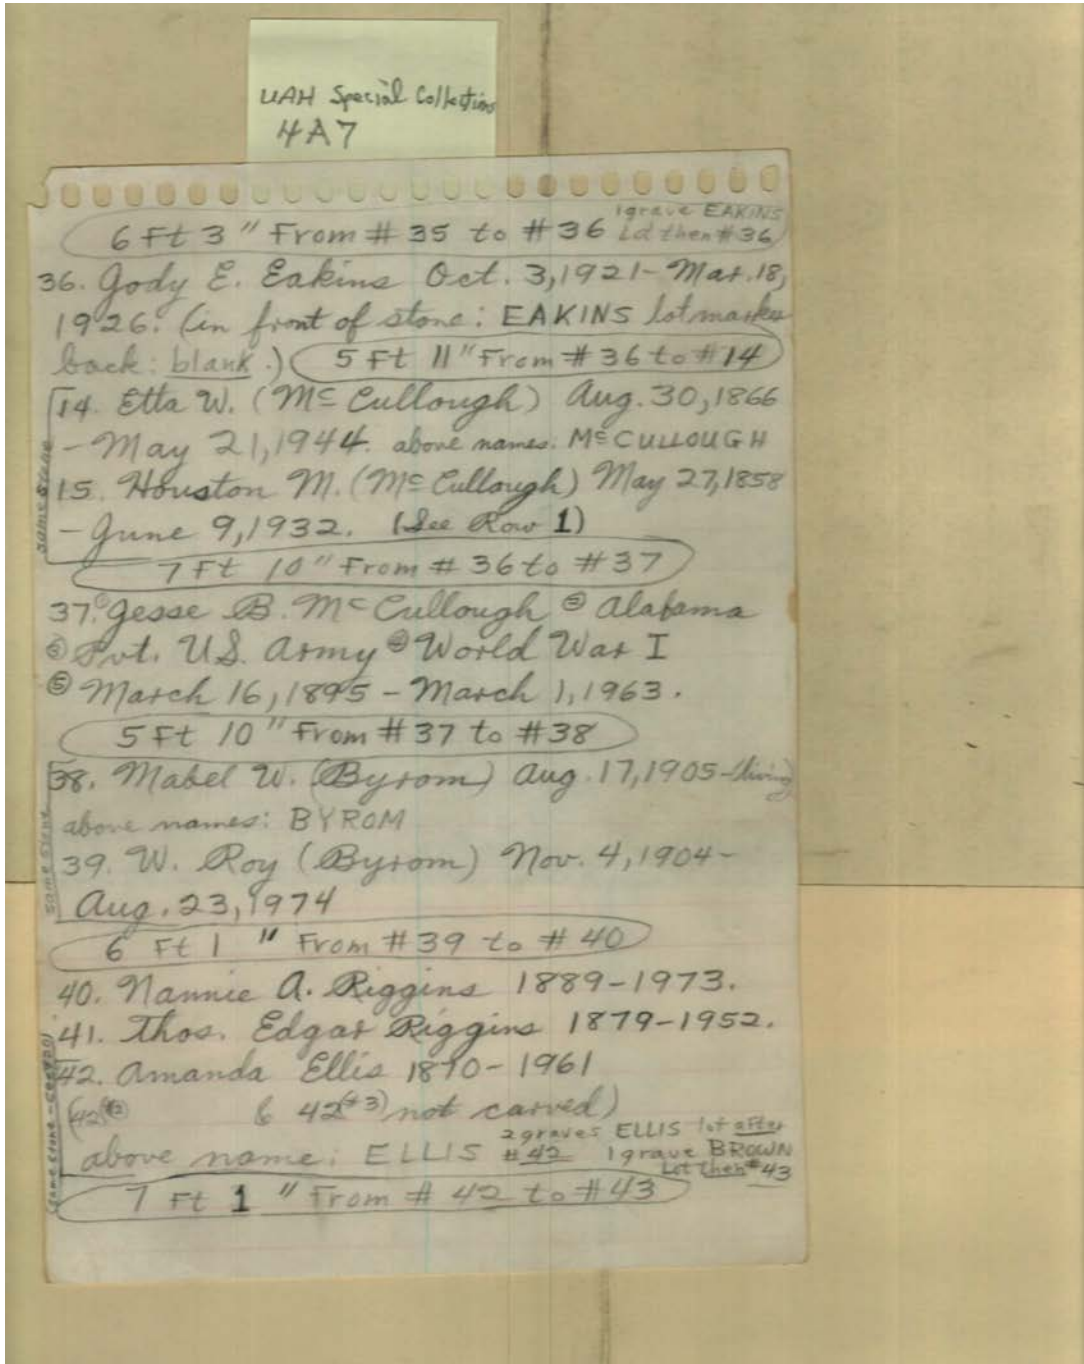 UAH Special Collections
4A7
6 Ft 3 " From # 35 to # 36 1 grave EAKINS
Lot then # 36
36. Jody E. Eakins Oct. 3, 1921 - Mar. 18,
1926. (in front of stone: EAKINS lot marker
back: blank.) 5 Ft 11 " From # 36 to # 14
14. Etta W. (McCullough) Aug. 30, 1866
- May 21, 1944. above names: McCULLOUGH
15. Houston M. (McCullough) May 27, 1858
- June 9, 1932. (See Row 1)
same stone
7 Ft 10 " From # 36 to # 37
37. Jesse B. McCullough ② Alabama
③ Pvt. U.S. Army ④ World War I
⑤ March 16, 1895 - March 1, 1963.
5 Ft 10 " From # 37 to # 38
38. Mabel W. (Byrom) Aug. 17, 1905 - living
above names: BYROM
39. W. Roy (Byrom) Nov. 4, 1904 -
Aug. 23, 1974
same stone
6 Ft 1 " From # 39 to # 40
40. Nannie A. Riggins 1889-1973.
41. Thos. Edgar Riggins 1879-1952.
42. Amanda Ellis 1870-1961
(42(#2) & 42(#3) not carved)
above name: ELLIS 2 graves ELLIS lot after
# 42 1 grave BROWN
Lot then # 43
same stone
7 Ft 1 " From # 42 to # 43